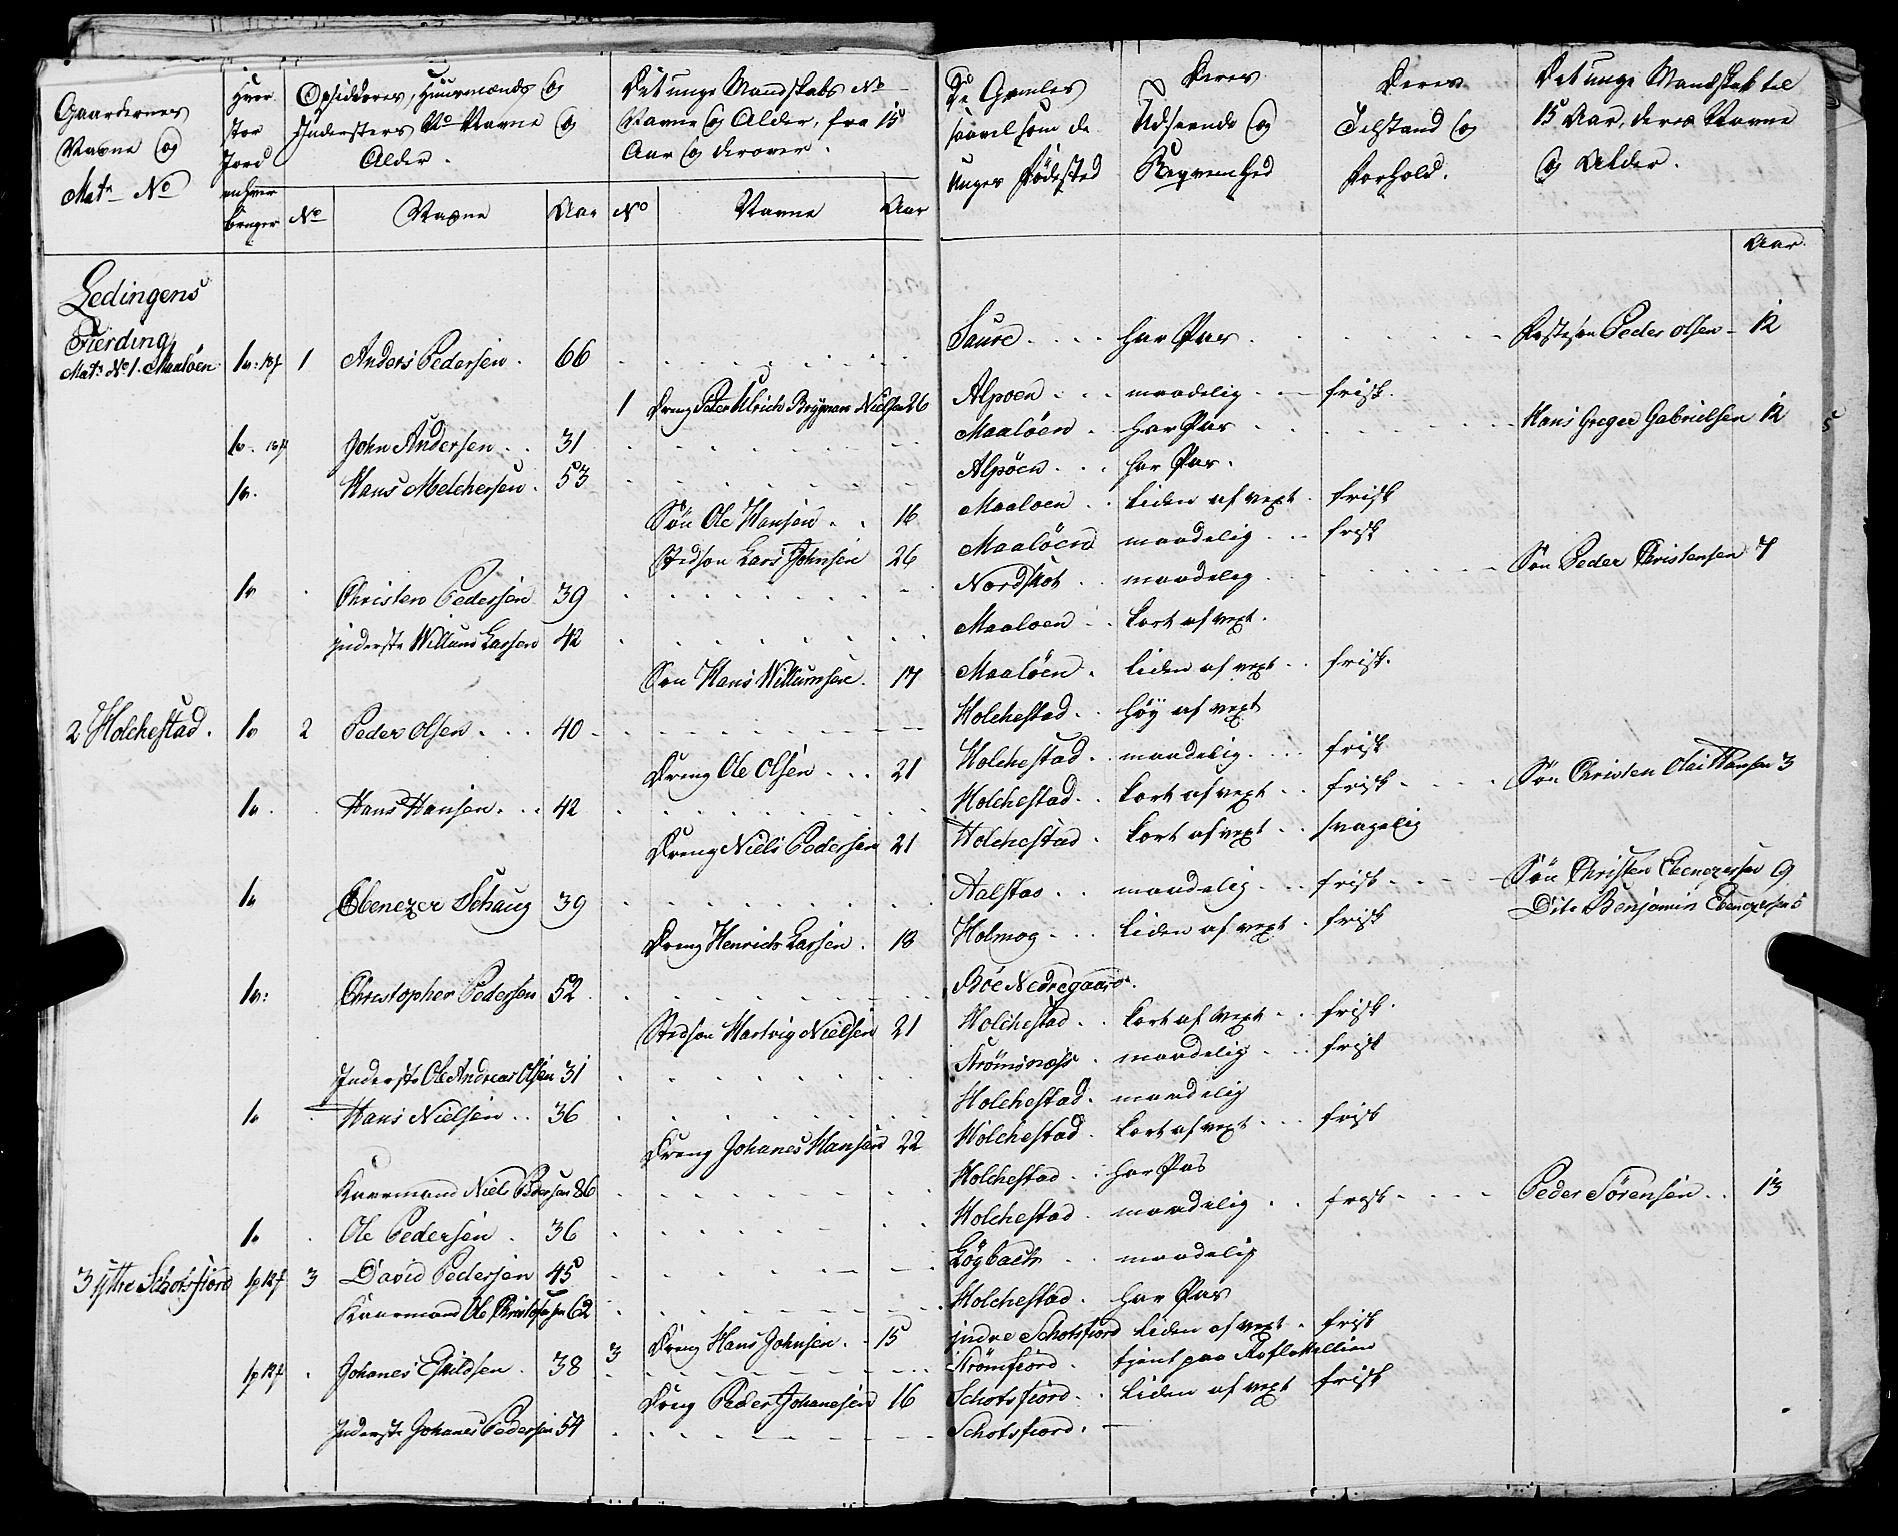 Gaardernes
Navne og
Matr No
Hvor
stor
Jord
enhver
bruger
Opsidderes, Huusmænds og
Indersters No Navne og
Alder.
No
Navne
Aar
Det unge Mandskabs No
Navne og Alder, fra 15
Aar og derover.
No
Navne
Aar
De Gamles
saavelsom de
unges Fødested
Deres
Udseende og
Beqvemhed
Deres
Tilstand og
Forhold.
Det unge Mandskab til
15 Aar, deres Navne
og Alder.
Aar.
Lødingens
Fierding
Matr No 1. Maaløen 1 Anders Pedersen. 66 Saure har Pas Peder Olsen 12
1 Dreng Peter Ulrich Bryman Nielsen 26 Alpøen maadelig frisk.
John Andersen 31 Maaløen har Pas Hans Greger Gabrielsen 12
Hans Melchersen 53 Alpøen har Pas.
Søn Ole Hansen 16 Maaløen Liden af vext frisk
Stedson Lars Johnsen 26 Maaløen maadelig frisk
Christen Pedersen 39 Nordskot maadelig Søn Peder Christensen 7
Inderste Willum Larsen 42 Maaløen kort af vext.
Søn Hans Willumsen 17 Maaløen Liden af vext frisk.
2 Holchestad. 2 Peder Olsen 40 Holchestad høy af vext
Dreng Ole Olsen 21 Holchestad maadelig frisk
Hans Hansen 42 Holchestad kort af vext frisk Søn Christen Olai Hansen 3
Dreng Niels Pedersen 21 Holchestad kort af vext svagelig
Ebenezer Schaug 39 Aalstad maadelig frisk Søn Christen Ebenezersen 9
Dito Benjamin Ebenezersen 5
Dreng Henrich Larsen 18 Holmog Liden af vext frisk
Christopher Pedersen 52 Böe Nedregaard.
Stedson Hartvig Nielsen 21 Holchestad kort af vext frisk.
Inderste Ole Andreas Olsen 31 Strömsnæss maadelig frisk
Hans Nielsen 36 Holchestad. maadelig
Dreng Johanes Hansen 22 Holchestad kort af vext frisk
Kaarmand Niels Pedersen 86 Holchestad har Pas
Ole Pedersen 36 Holchestad maadelig frisk Peder Sörensen 13
3 Ytre Schotsfiord 3 David Pedersen 45 maadelig
Kaarmand Ole Christophersen 62 Holchestad har Pas
3 Dreng Hans Johnsen 15 indre Schotsfiord Liden af vext frisk
Johanes Eskildsen 38 Strömfiord tjent paa
Dreng Peder Johanesen 16 Schotsfiord Liden af vext frisk
Inderste Johanes Pedersen 54 Schotsfiord.